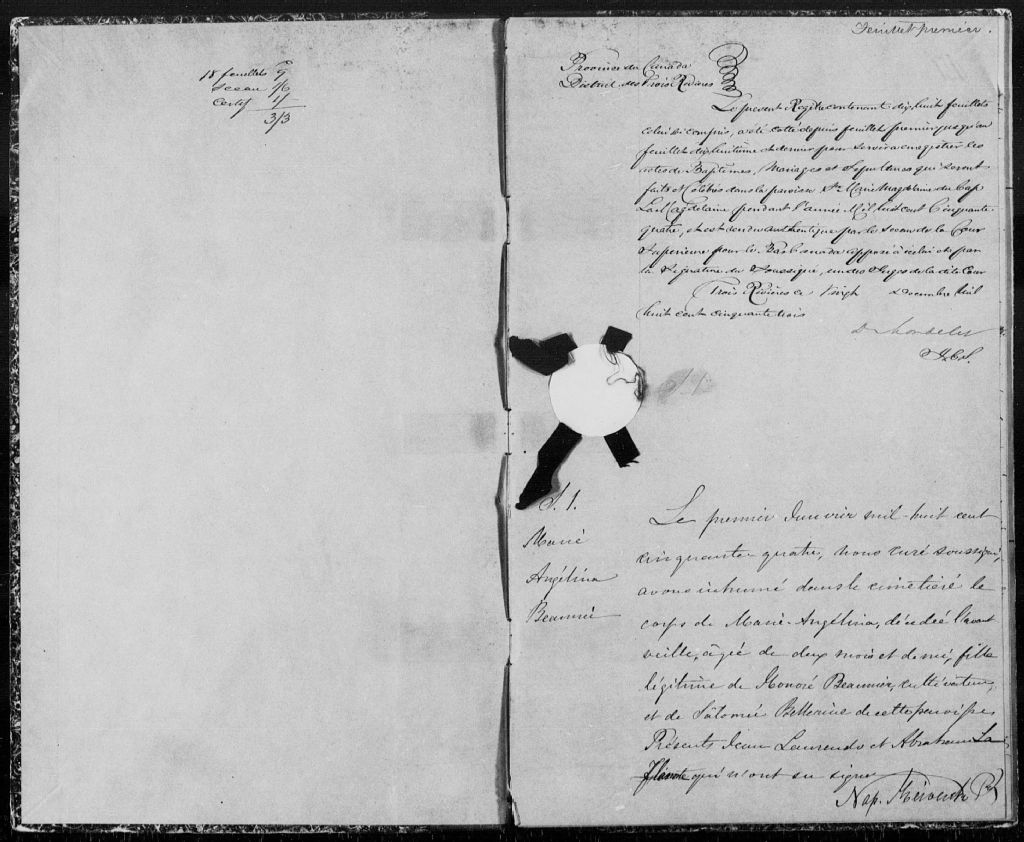 18 feuillets 9
Sceau 1/6
Certif 1/
3/3
Feuillet premier.
Province du Canada
District des Trois Rivières
Le présent Registre contenant dix huit feuillets
celui ci compris, a été cotté depuis feuillet premier jusqu'au
feuillet dix huitième et dernier pour servir à enregistrer les
actes de Baptêmes, Mariages et Sépultures qui seront
faits et Célébrés dans la paroisse Ste Marie Magdelaine du Cap
La Magdelaine pendant l'année Mil huit cent Cinquante
quatre, et est rendu authentique par le sceau de la Cour
Supérieure pour le Bas Canada apposé à icelui et par
la Signature du Soussigné, un des Juges de la dite Cour
Trois Rivières ce Vingt Décembre Mil
huit cent cinquante trois
J.C.S.
S. 1.
Marie
Angélina
Beaumié
Le premier Janvier mil-huit cent
cinquante quatre, nous curé soussigné,
avons inhumé dans le cimetière le
corps de Marie-Angélina, décédée l'avant
veille, âgée de deux mois et demi, fille
légitime de Honoré Beaumier, cultivateur,
et de Salomée de cette paroisse,
Présents Jean Laurendo et Abraham La
qui n'ont su signer
Nap. Ptre